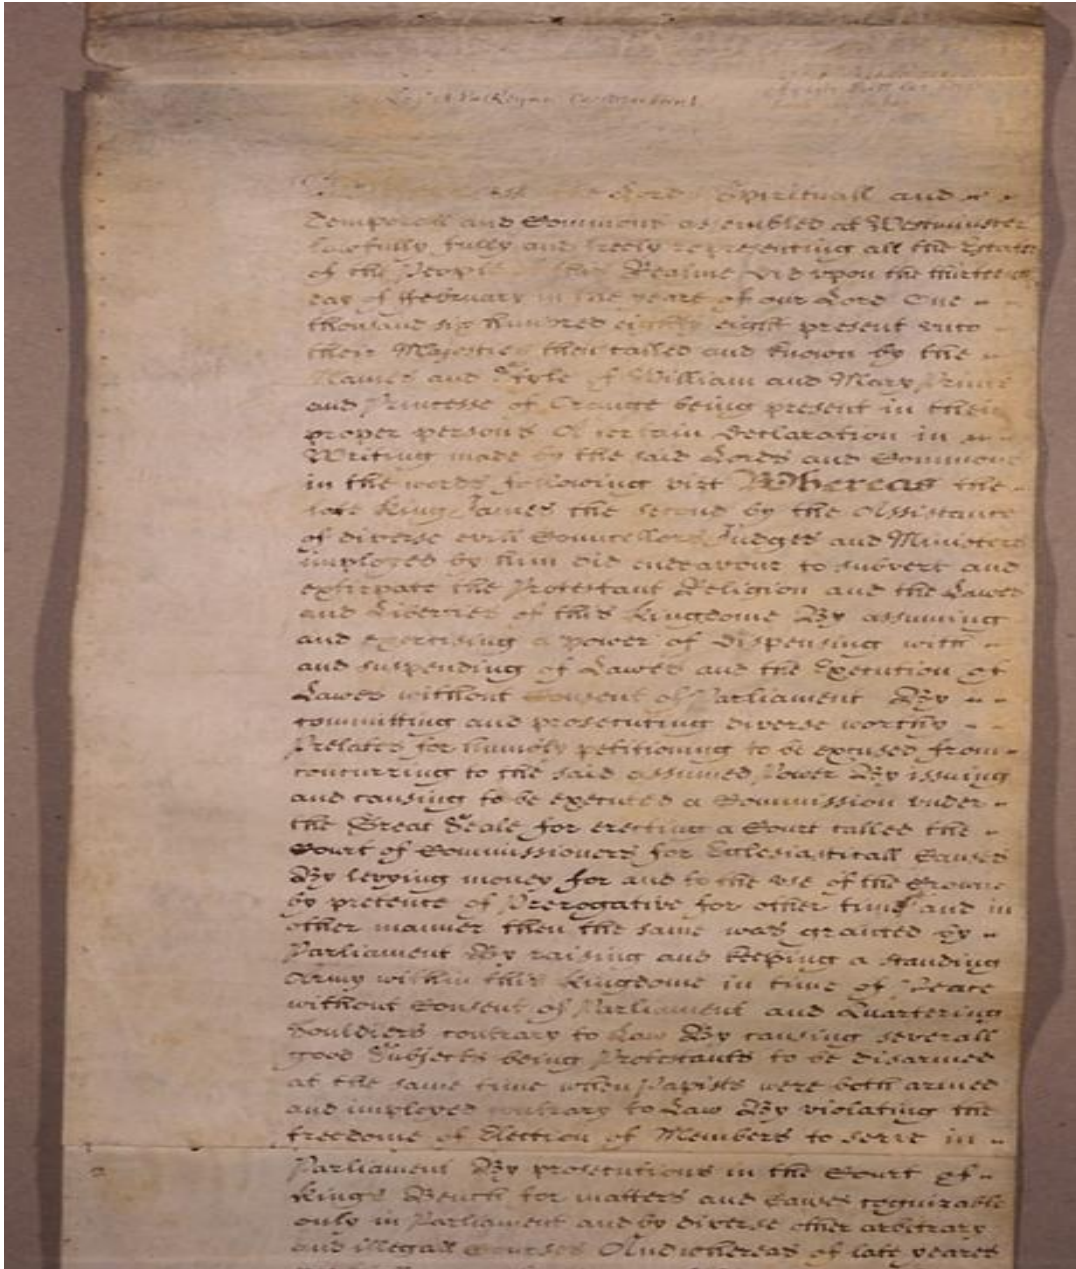 Le Roy & la Reyne
Lords Spirituall and
Temporall and Commons assembled at Westminster
lawfully fully and freely representing all the Estates
of the People of this Realme did upon the thirteenth
day of February in the yeare of our Lord One
thousand six hundred eighty eight present unto
their Majesties then called and known by the
Names and Stile of William and Mary Prince
and Princesse of Orange being present in their
proper persons A certain Declaration in
Writing made by the said Lords and Commons
in the words following vizt Whereas the
late King James the second by the Assistance
of diverse evill Councellors Judges and Ministers
imployed by him did endeavour to subvert and
extirpate the Protestant Religion and the Lawes
and Liberties of this Kingdome By assuming
and exercising a Power of Dispensing with
and suspending of Lawes and the Execution of
Lawes without Consent of Parliament By
committing and prosecuting diverse worthy
Prelates for humbly petitioning to be excused from
concurring to the said assumed Power By issuing
and causing to be executed a Commission under
the Great Seale for erecting a Court called the
Court of Commissioners for Ecclesiasticall Causes
By levying money for and to the use of the Crowne
by pretence of Prerogative for other time and in
other manner then the same was granted by
Parliament By raising and keeping a standing
Army within this Kingdome in time of Peace
without Consent of Parliament and Quartering
Souldiers contrary to Law By causing severall
good Subjects being Protestants to be disarmed
at the same time when Papists were both armed
and imployed contrary to Law By violating the
freedome of Election of Members to serve in
Parliament By prosecutions in the Court of
Kings Bench for matters and Causes cognizable
only in Parliament and by diverse other arbitrary
and illegall Courses And whereas of late yeares